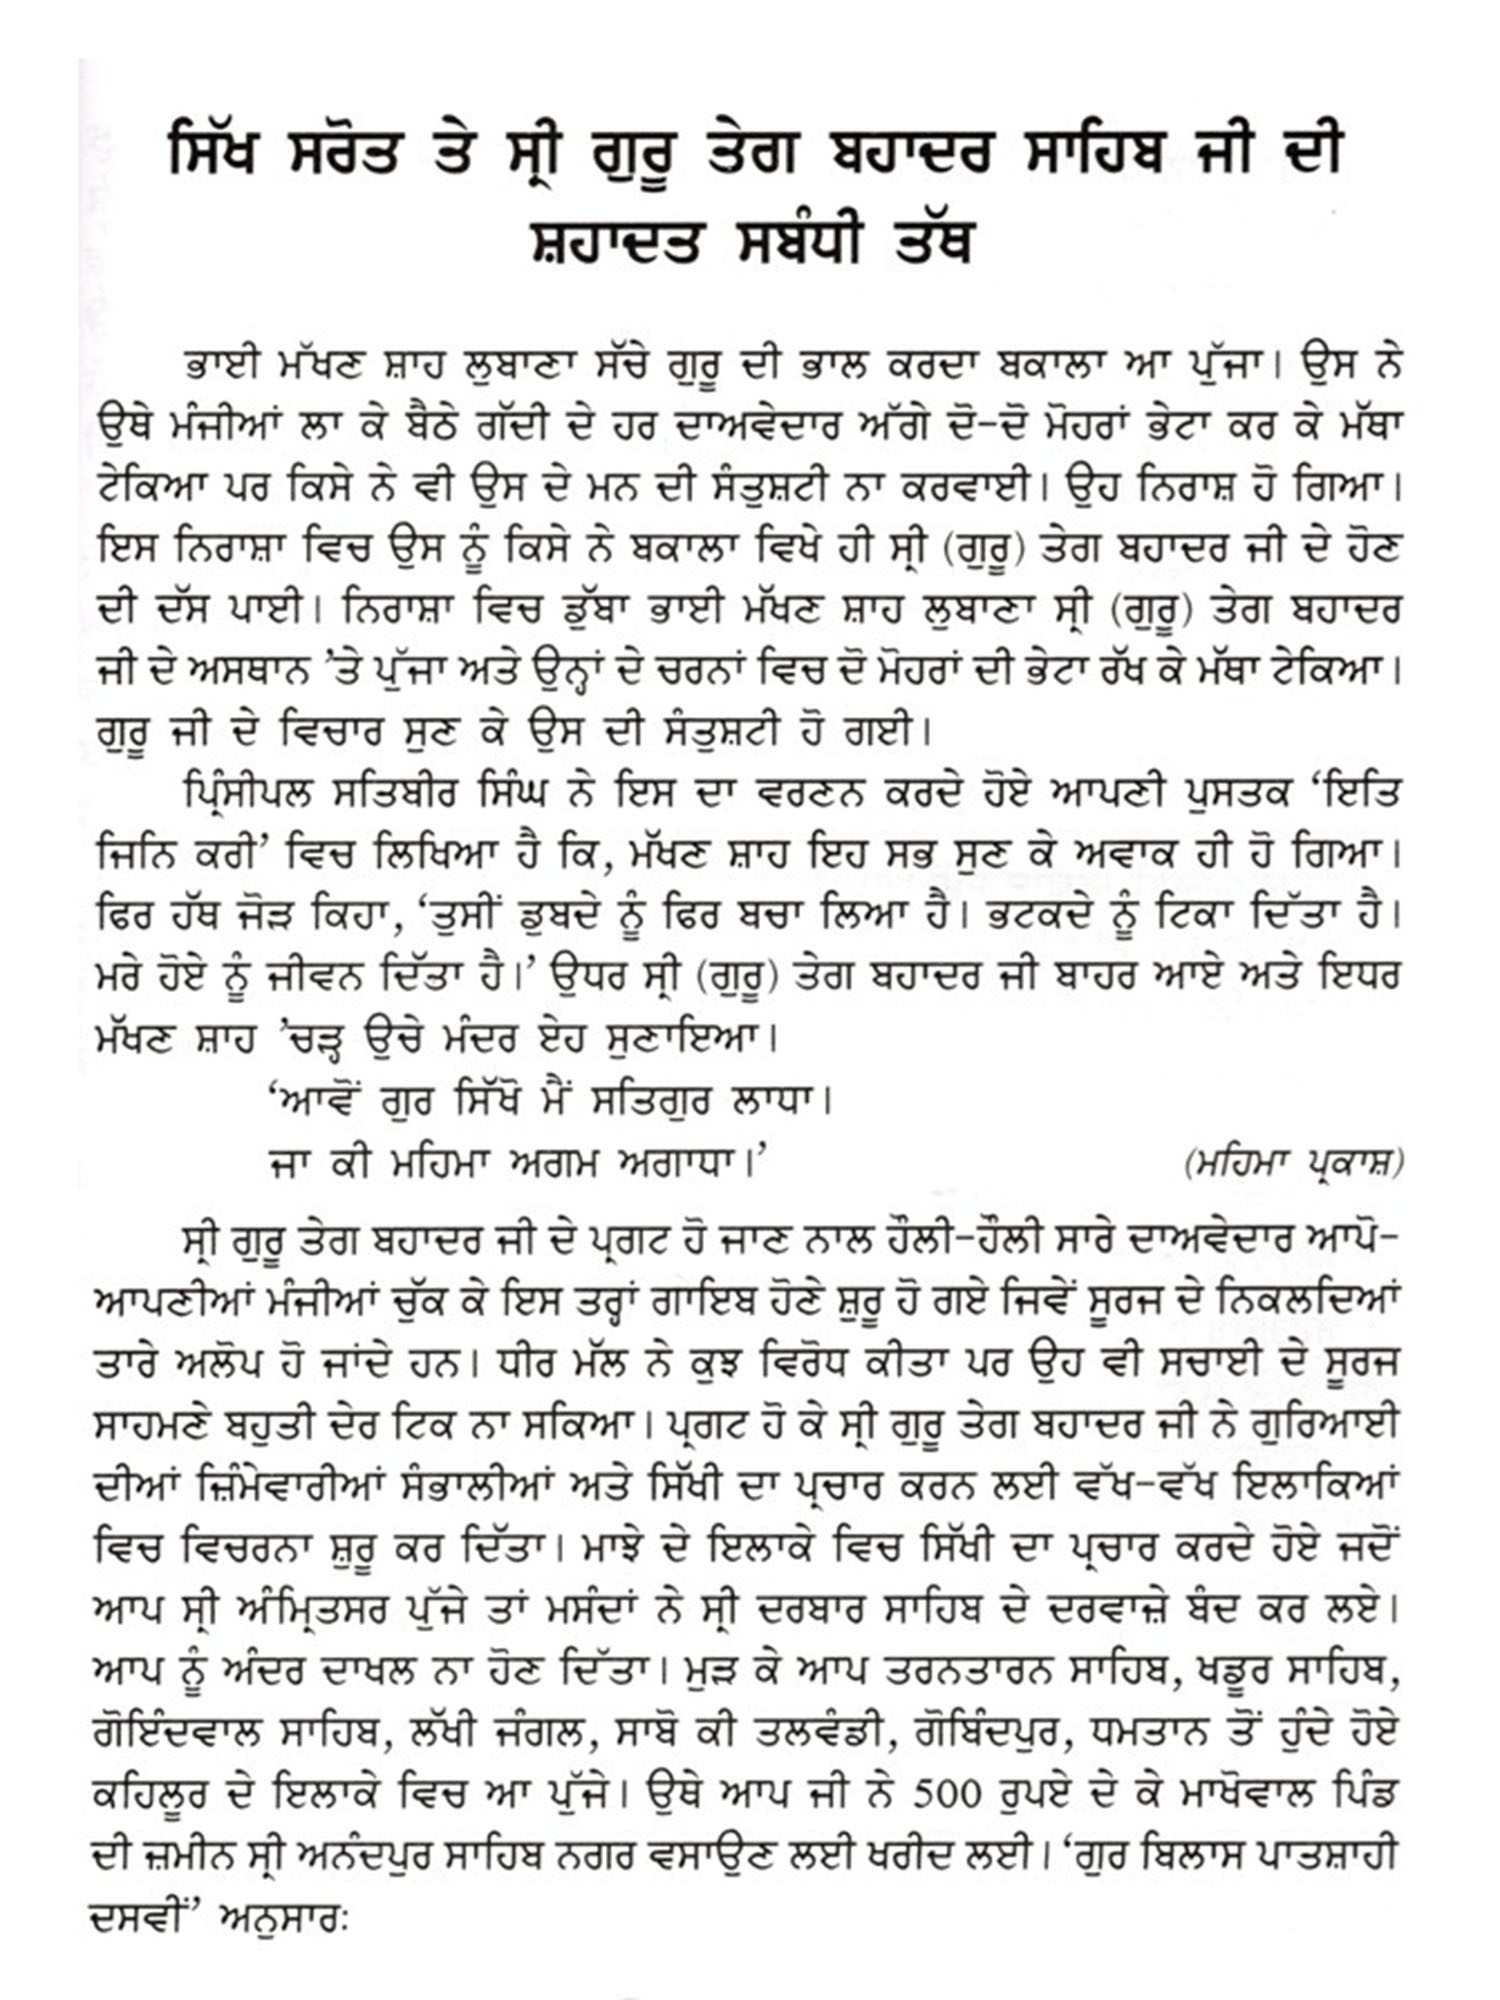 ਸਿੱਖ ਸਰੋਤ ਤੇ ਸ੍ਰੀ ਗੁਰੂ ਤੇਗ ਬਹਾਦਰ ਸਾਹਿਬ ਜੀ ਦੀ
ਸ਼ਹਾਦਤ ਸਬੰਧੀ ਤੱਥ
ਭਾਈ ਮੱਖਣ ਸ਼ਾਹ ਲੁਬਾਣਾ ਸੱਚੇ ਗੁਰੂ ਦੀ ਭਾਲ ਕਰਦਾ ਬਕਾਲਾ ਆ ਪੁੱਜਾ। ਉਸ ਨੇ
ਉਥੇ ਮੰਜੀਆਂ ਲਾ ਕੇ ਬੈਠੇ ਗੱਦੀ ਦੇ ਹਰ ਦਾਅਵੇਦਾਰ ਅੱਗੇ ਦੋ-ਦੋ ਮੋਹਰਾਂ ਭੇਟਾ ਕਰ ਕੇ ਮੱਥਾ
ਟੇਕਿਆ ਪਰ ਕਿਸੇ ਨੇ ਵੀ ਉਸ ਦੇ ਮਨ ਦੀ ਸੰਤੁਸ਼ਟੀ ਨਾ ਕਰਵਾਈ। ਉਹ ਨਿਰਾਸ਼ ਹੋ ਗਿਆ।
ਇਸ ਨਿਰਾਸ਼ਾ ਵਿਚ ਉਸ ਨੂੰ ਕਿਸੇ ਨੇ ਬਕਾਲਾ ਵਿਖੇ ਹੀ ਸ੍ਰੀ (ਗੁਰੂ) ਤੇਗ ਬਹਾਦਰ ਜੀ ਦੇ ਹੋਣ
ਦੀ ਦੱਸ ਪਾਈ। ਨਿਰਾਸ਼ਾ ਵਿਚ ਡੁੱਬਾ ਭਾਈ ਮੱਖਣ ਸ਼ਾਹ ਲੁਬਾਣਾ ਸ੍ਰੀ (ਗੁਰੂ) ਤੇਗ ਬਹਾਦਰ
ਜੀ ਦੇ ਅਸਥਾਨ ’ਤੇ ਪੁੱਜਾ ਅਤੇ ਉਨ੍ਹਾਂ ਦੇ ਚਰਨਾਂ ਵਿਚ ਦੋ ਮੋਹਰਾਂ ਦੀ ਭੇਟਾ ਰੱਖ ਕੇ ਮੱਥਾ ਟੇਕਿਆ।
ਗੁਰੂ ਜੀ ਦੇ ਵਿਚਾਰ ਸੁਣ ਕੇ ਉਸ ਦੀ ਸੰਤੁਸ਼ਟੀ ਹੋ ਗਈ।
ਪ੍ਰਿੰਸੀਪਲ ਸਤਿਬੀਰ ਸਿੰਘ ਨੇ ਇਸ ਦਾ ਵਰਣਨ ਕਰਦੇ ਹੋਏ ਆਪਣੀ ਪੁਸਤਕ ‘ਇਤਿ
ਜਿਨਿ ਕਰੀ’ ਵਿਚ ਲਿਖਿਆ ਹੈ ਕਿ, ਮੱਖਣ ਸ਼ਾਹ ਇਹ ਸਭ ਸੁਣ ਕੇ ਅਵਾਕ ਹੀ ਹੋ ਗਿਆ।
ਫਿਰ ਹੱਥ ਜੋੜ ਕਿਹਾ, ‘ਤੁਸੀਂ ਡੁਬਦੇ ਨੂੰ ਫਿਰ ਬਚਾ ਲਿਆ ਹੈ। ਭਟਕਦੇ ਨੂੰ ਟਿਕਾ ਦਿੱਤਾ ਹੈ।
ਮਰੇ ਹੋਏ ਨੂੰ ਜੀਵਨ ਦਿੱਤਾ ਹੈ।’ ਉਧਰ ਸ੍ਰੀ (ਗੁਰੂ) ਤੇਗ ਬਹਾਦਰ ਜੀ ਬਾਹਰ ਆਏ ਅਤੇ ਇਧਰ
ਮੱਖਣ ਸ਼ਾਹ ’ਚੜ੍ਹ ਉਚੇ ਮੰਦਰ ਏਹ ਸੁਣਾਇਆ।
‘ਆਵੋਂ ਗੁਰ ਸਿੱਖੋ ਮੈਂ ਸਤਿਗੁਰ ਲਾਧਾ।
ਜਾ ਕੀ ਮਹਿਮਾ ਅਗਮ ਅਗਾਧਾ।’ (ਮਹਿਮਾ ਪ੍ਰਕਾਸ਼)
ਸ੍ਰੀ ਗੁਰੂ ਤੇਗ ਬਹਾਦਰ ਜੀ ਦੇ ਪ੍ਰਗਟ ਹੋ ਜਾਣ ਨਾਲ ਹੌਲੀ-ਹੌਲੀ ਸਾਰੇ ਦਾਅਵੇਦਾਰ ਆਪੋ-
ਆਪਣੀਆਂ ਮੰਜੀਆਂ ਚੁੱਕ ਕੇ ਇਸ ਤਰ੍ਹਾਂ ਗਾਇਬ ਹੋਣੇ ਸ਼ੁਰੂ ਹੋ ਗਏ ਜਿਵੇਂ ਸੂਰਜ ਦੇ ਨਿਕਲਦਿਆਂ
ਤਾਰੇ ਅਲੋਪ ਹੋ ਜਾਂਦੇ ਹਨ। ਧੀਰ ਮੱਲ ਨੇ ਕੁਝ ਵਿਰੋਧ ਕੀਤਾ ਪਰ ਉਹ ਵੀ ਸਚਾਈ ਦੇ ਸੂਰਜ
ਸਾਹਮਣੇ ਬਹੁਤੀ ਦੇਰ ਟਿਕ ਨਾ ਸਕਿਆ। ਪ੍ਰਗਟ ਹੋ ਕੇ ਸ੍ਰੀ ਗੁਰੂ ਤੇਗ ਬਹਾਦਰ ਜੀ ਨੇ ਗੁਰਿਆਈ
ਦੀਆਂ ਜ਼ਿੰਮੇਵਾਰੀਆਂ ਸੰਭਾਲੀਆਂ ਅਤੇ ਸਿੱਖੀ ਦਾ ਪ੍ਰਚਾਰ ਕਰਨ ਲਈ ਵੱਖ-ਵੱਖ ਇਲਾਕਿਆਂ
ਵਿਚ ਵਿਚਰਨਾ ਸ਼ੁਰੂ ਕਰ ਦਿੱਤਾ। ਮਾਝੇ ਦੇ ਇਲਾਕੇ ਵਿਚ ਸਿੱਖੀ ਦਾ ਪ੍ਰਚਾਰ ਕਰਦੇ ਹੋਏ ਜਦੋਂ
ਆਪ ਸ੍ਰੀ ਅੰਮ੍ਰਿਤਸਰ ਪੁੱਜੇ ਤਾਂ ਮਸੰਦਾਂ ਨੇ ਸ੍ਰੀ ਦਰਬਾਰ ਸਾਹਿਬ ਦੇ ਦਰਵਾਜ਼ੇ ਬੰਦ ਕਰ ਲਏ।
ਆਪ ਨੂੰ ਅੰਦਰ ਦਾਖਲ ਨਾ ਹੋਣ ਦਿੱਤਾ। ਮੁੜ ਕੇ ਆਪ ਤਰਨਤਾਰਨ ਸਾਹਿਬ, ਖਡੂਰ ਸਾਹਿਬ,
ਗੋਇੰਦਵਾਲ ਸਾਹਿਬ, ਲੱਖੀ ਜੰਗਲ, ਸਾਬੋ ਕੀ ਤਲਵੰਡੀ, ਗੋਬਿੰਦਪੁਰ, ਧਮਤਾਨ ਤੋਂ ਹੁੰਦੇ ਹੋਏ
ਕਹਿਲੂਰ ਦੇ ਇਲਾਕੇ ਵਿਚ ਆ ਪੁੱਜੇ। ਉਥੇ ਆਪ ਜੀ ਨੇ 500 ਰੁਪਏ ਦੇ ਕੇ ਮਾਖੋਵਾਲ ਪਿੰਡ
ਦੀ ਜ਼ਮੀਨ ਸ੍ਰੀ ਅਨੰਦਪੁਰ ਸਾਹਿਬ ਨਗਰ ਵਸਾਉਣ ਲਈ ਖਰੀਦ ਲਈ। ‘ਗੁਰ ਬਿਲਾਸ ਪਾਤਸ਼ਾਹੀ
ਦਸਵੀਂ’ ਅਨੁਸਾਰ: